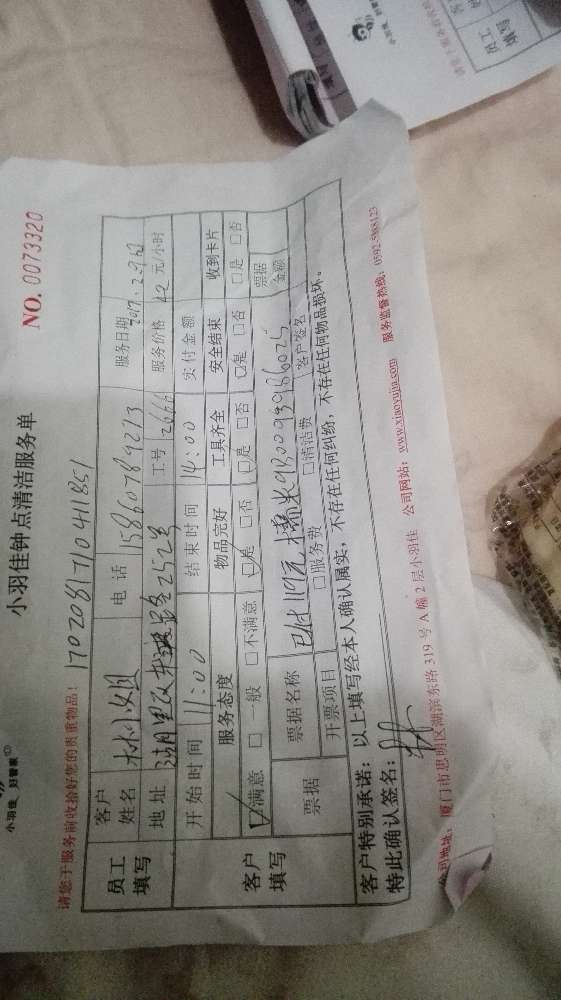 小羽佳 好管家
小羽佳钟点清洁服务单
NO. 0073320
请您于服务前收拾好您的贵重物品！
1702081710411351
员工填写
客户姓名 林小姐 电话 15860789213 服务日期
地址 工号 2666 服务价格 42 元/小时
客户填写
开始时间 11:00 结束时间 14:00 实付金额
服务态度 物品完好 工具齐全 安全结束 收到卡片
☑满意 □一般 □不满意 ☑是 □否 ☑是 □否 ☑是 □否 □是 □否
票据 票据名称 已付119元糯米 票据金额
开票项目 □服务费 □清洁费 客户签名
客户特别承诺：以上填写经本人确认属实，不存在任何纠纷，不存在任何物品损坏。
特此确认签名：林
公司地址：厦门市思明区湖滨东路 319 号 A 幢 2 层小羽佳 公司网站：www.xiaoyujia.com 服务监督热线：0592-5188123
小羽佳 好管家
员工填写